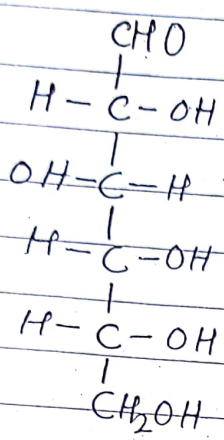 CHO
|
H - C - OH
|
OH - C - H
|
H - C - OH
|
H - C - OH
|
CH₂OH